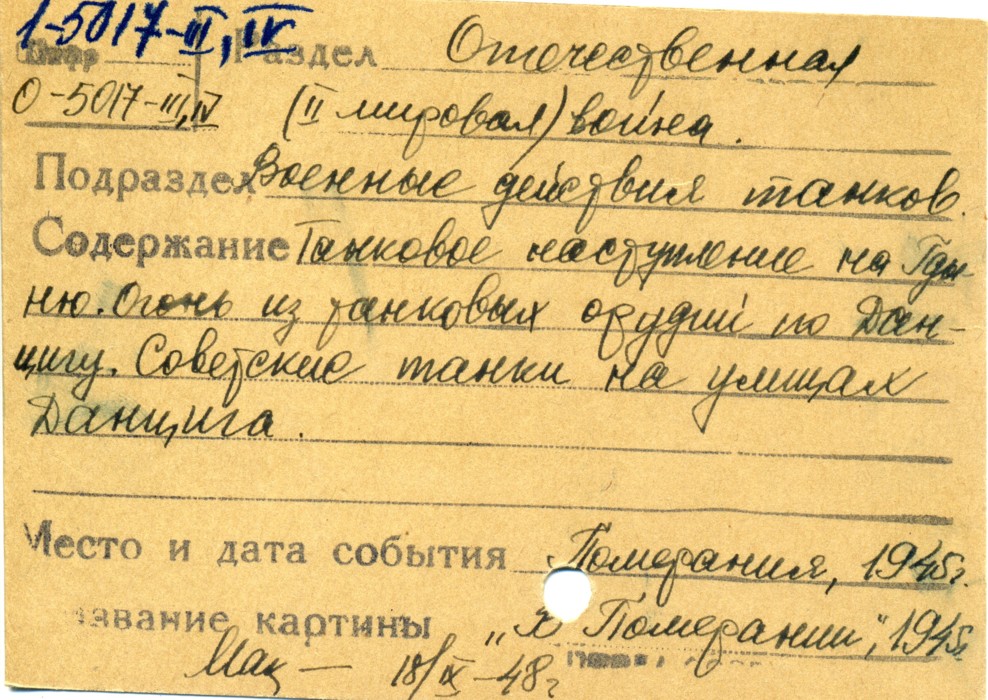 1-5017-III, IV Раздел Отечественная
0-5017-III, IV (II мировая) война.
Подраздел Военные действия танков.
Содержание Танковое наступление на Гды-
ню. Огонь из танковых орудий по Дан-
цигу. Советские танки на улицах
Данцига.
Место и дата события Померания, 1945г.
звание картины „В Померании", 1945г.
18/IX-48г